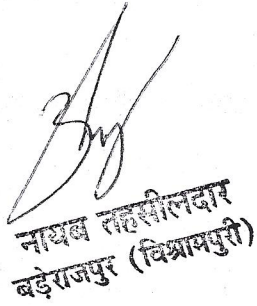 नायब तहसीलदार
बड़ेराजपुर (विश्रामपुरी)